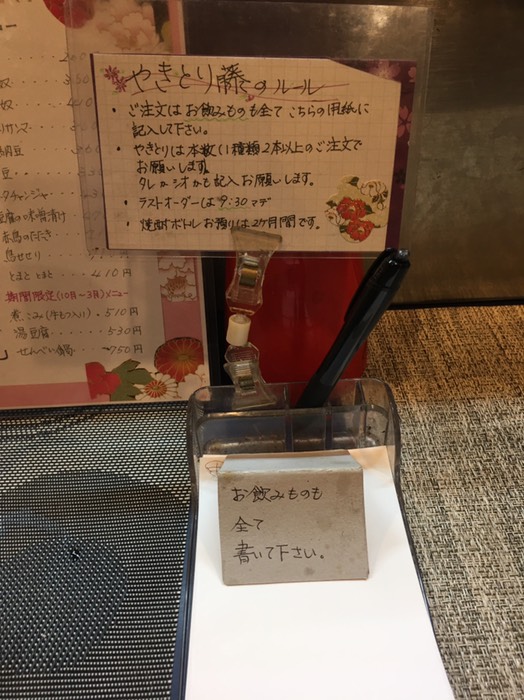 やきとり藤のルール
・ご注文はお飲みものも全てこちらの用紙に
記入して下さい。
・やきとりは本数(1種類2本以上のご注文で
お願いします。
タレかシオかも記入お願いします。
・ラストオーダーは9:30マデ
・焼酎ボトルお預りは2ケ月間です。
豆腐の味噌漬け
馬のたたき
馬せせり
とまと とまと ・・・ 410円
期間限定(10月〜3月)メニュー
煮こみ(牛もつ入り)・・510円
湯豆腐・・・・・530円
せんべい鍋・・・・750円
お飲みものも
全て
書いて下さい。